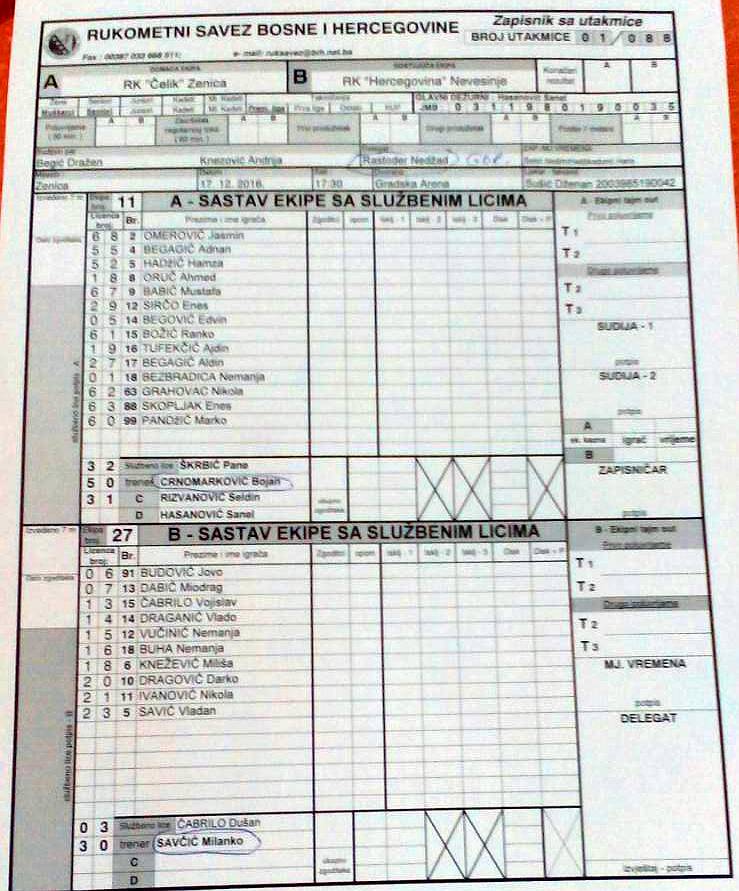 RUKOMETNI SAVEZ BOSNE I HERCEGOVINE
Zapisnik sa utakmice
BROJ UTAKMICE 0 1 / 0 8 8
Fax : 00387 033 668 511; e- mail: ruksavez@bih.net.ba
A RK "Čelik" Zenica
B RK "Hercegovina" Nevesinje
Konačan rezultat A B
GLAVNI DEŽURNI : Hasanović Sanet
JMB 0 3 1 1 9 8 0 1 9 0 0 3 5
Begić Dražen Knezović Andrija Rastoder Nedžad
Zenica 17. 12. 2016. 17:30 Gradska Arena Sušić Dženan 2003965190042
Izvedeno 7 m
Ekipa broj 11 A - SASTAV EKIPE SA SLUŽBENIM LICIMA
Licenca broj: Br. Prezime i ime igrača Zgodici opom Isklj - 1 Isklj - 2 Isklj - 3 Disk Disk + P
6 8 2 OMEROVIĆ Jasmin
5 5 4 BEGAGIĆ Adnan
5 2 5 HADŽIĆ Hamza
1 8 8 ORUČ Ahmed
6 7 9 BABIĆ Mustafa
2 9 12 SIRČO Enes
0 5 14 BEGOVIĆ Edvin
6 1 15 BOŽIĆ Ranko
1 9 16 TUFEKČIĆ Ajdin
2 7 17 BEGAGIĆ Aldin
0 1 18 BEZBRADICA Nemanja
6 2 63 GRAHOVAC Nikola
6 3 88 SKOPLJAK Enes
6 0 99 PANDŽIĆ Marko
3 2 Službeno lice ŠKRBIĆ Pane
5 0 trener CRNOMARKOVIĆ Bojan
3 1 C RIZVANOVIĆ Seldin
D HASANOVIĆ Sanel
A - Ekipni tajm out
Prvo poluvrijeme
T 1
T 2
Drugo poluvrijeme
T 2
T 3
SUDIJA - 1
potpis
SUDIJA - 2
potpis
A
ek. kazna igrač vrijeme
B
ZAPISNIČAR
potpis
službeno lice potpis - A
Izvedeno 7 m
Ekipa broj 27 B - SASTAV EKIPE SA SLUŽBENIM LICIMA
Licenca broj: Br. Prezime i ime igrača Zgodici opom Isklj - 1 Isklj - 2 Isklj - 3 Disk Disk + P
0 6 91 BUDOVIĆ Jovo
0 7 13 DABIĆ Miodrag
1 3 15 ČABRILO Vojislav
1 4 14 DRAGANIĆ Vlado
1 5 12 VUČINIĆ Nemanja
1 6 18 BUHA Nemanja
1 8 6 KNEŽEVIĆ Miliša
2 0 10 DRAGOVIĆ Darko
2 1 11 IVANOVIĆ Nikola
2 3 5 SAVIĆ Vladan
0 3 Službeno lice ČABRILO Dušan
3 0 trener SAVČIĆ Milanko
C
D
B - Ekipni tajm out
Prvo poluvrijeme
T 1
T 2
Drugo poluvrijeme
T 2
T 3
MJ. VREMENA
potpis
DELEGAT
Izvještaj - potpis
službeno lice potpis - B